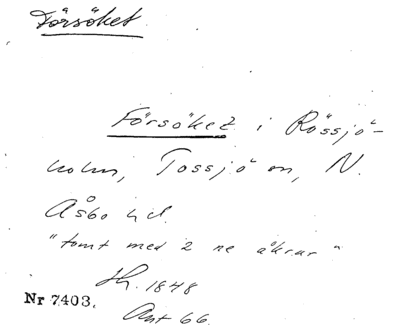 Försöket
Försöket i Rössjö-
holm, Tossjö sn, N.
Åsbo hd.
"tomt med 2 ne åkrar"
Hh. 1848
Nr 7403.
Ant 66.